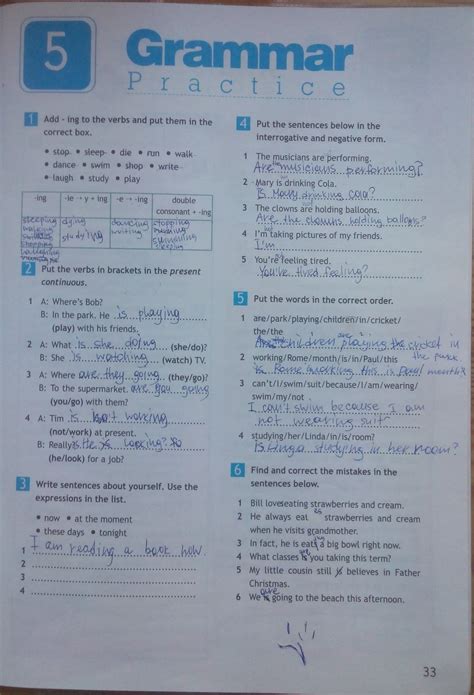 5
Grammar
Practice
1 Add - ing to the verbs and put them in the
correct box.
• stop • sleep • die • run • walk
• dance • swim • shop • write
• laugh • study • play
-ing
-ie → y + ing
-e → -ing
double
consonant + -ing
sleeping
dying
dancing
stopping
studying
writing
running
swimming
2 Put the verbs in brackets in the present
continuous.
1 A: Where's Bob?
B: In the park. He is playing
(play) with his friends.
2 A: What is she doing (she/do)?
B: She is watching (watch) TV.
3 A: Where are they going (they/go)?
B: To the supermarket. are you going
(you/go) with them?
4 A: Tim is working
(not/work) at present.
B: Really is He is looking?
(he/look) for a job?
3 Write sentences about yourself. Use the
expressions in the list.
• now • at the moment
• these days • tonight
1 I am reading a book now.
2
3
4
4 Put the sentences below in the
interrogative and negative form.
1 The musicians are performing.
Are musicians performing?
2 Mary is drinking Cola.
Is Mary drinking
3 The clowns are holding balloons.
Are the clowns holding
4 I'm taking pictures of my friends.
I'm
5 You're feeling tired.
You're tired feeling?
5 Put the words in the correct order.
1 are/park/playing/children/in/cricket/
the/the
children are playing the cricket in
the park
2 working/Rome/month/is/in/Paul/this
is Rome working this is Paul month?
3 can't/I/swim/suit/because/I/am/wearing/
swim/my/not
I can't swim because I am
not wearing suit
4 studying/her/Linda/in/is/room?
Is studying in her room?
6 Find and correct the mistakes in the
sentences below.
1 Bill loveseating strawberries and cream.
2 He always eat es strawberries and cream
when he visits grandmother.
3 In fact, he is eating a big bowl right now.
4 What classes is you taking this term?
5 My little cousin still is believes in Father
Christmas.
6 We is are going to the beach this afternoon.
33